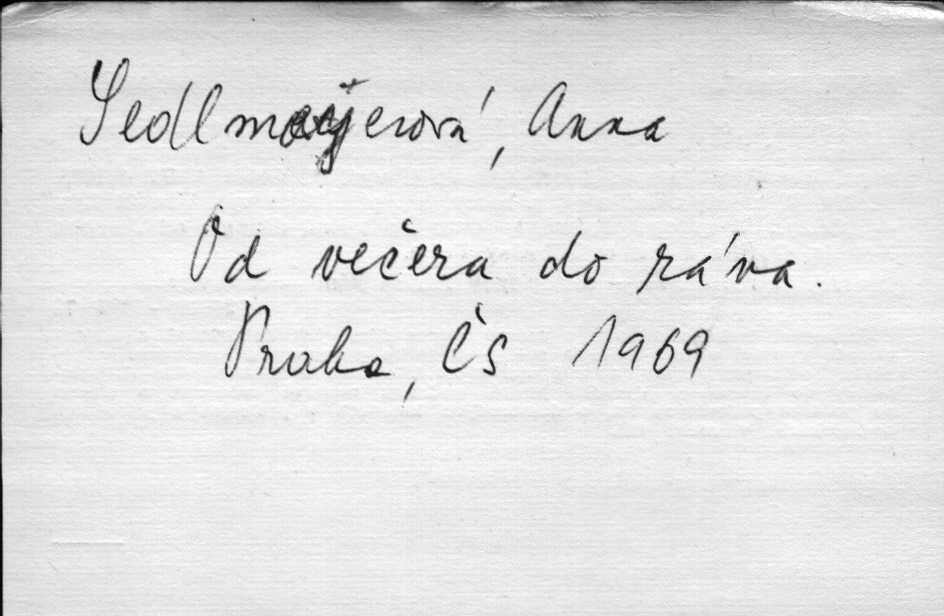 Sedlmayerová, Anna
Od večera do rána.
Praha, ČS 1969